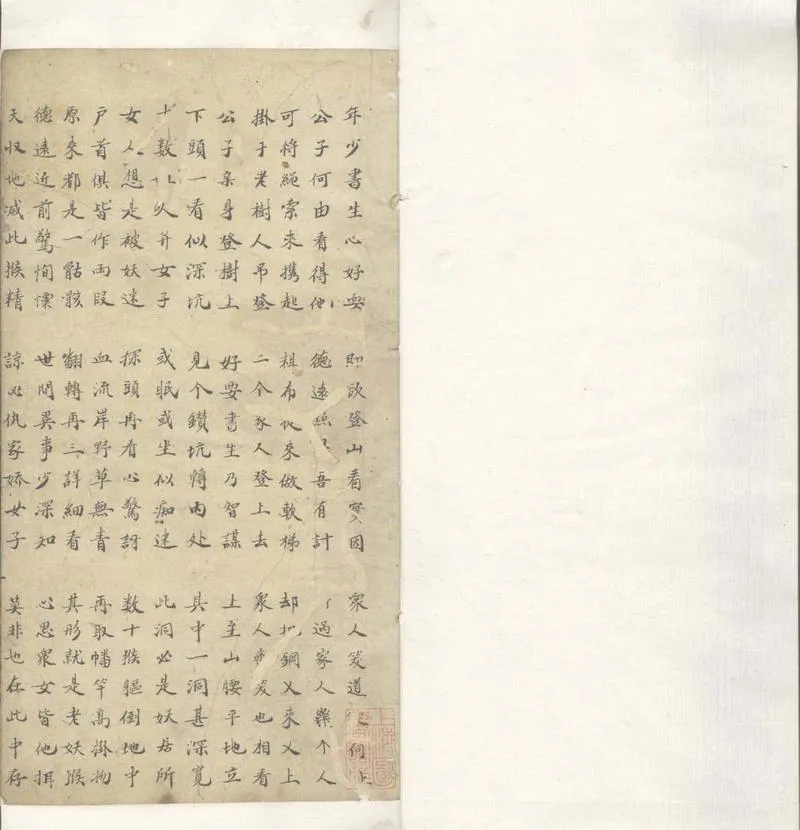 年少書生心好耍 則欲登山看實因 衆人笑道何上
公子何由看得他 德遠吾有計 过家人幾个人
可將繩索來携起 粗布來做軟梯 却把鋼叉來叉上
掛于老樹人吊登 二个家人登上去 衆人也相看
公子亲身登樹上 好耍書生乃智謀 上至山腰平地立
下頭一看似深坑 見个鑽坑轉两处 其中一洞甚深寬
十数人并女子 或眠或坐似痴迷 此洞必是妖居所
女人想是被妖迷 探頭再看心驚訝 数十猴軀倒地中
户首俱皆作両段 血流岸野草無青 再取幡竿高掛物
原來都是一骷骸 翻轉再三詳細看 其形就是老妖猴
德遠近前驚恂慄 世間異事少深知 心思衆女皆他
天収地滅此猴精 諒必仇家嬌女子 莫非也在此中存